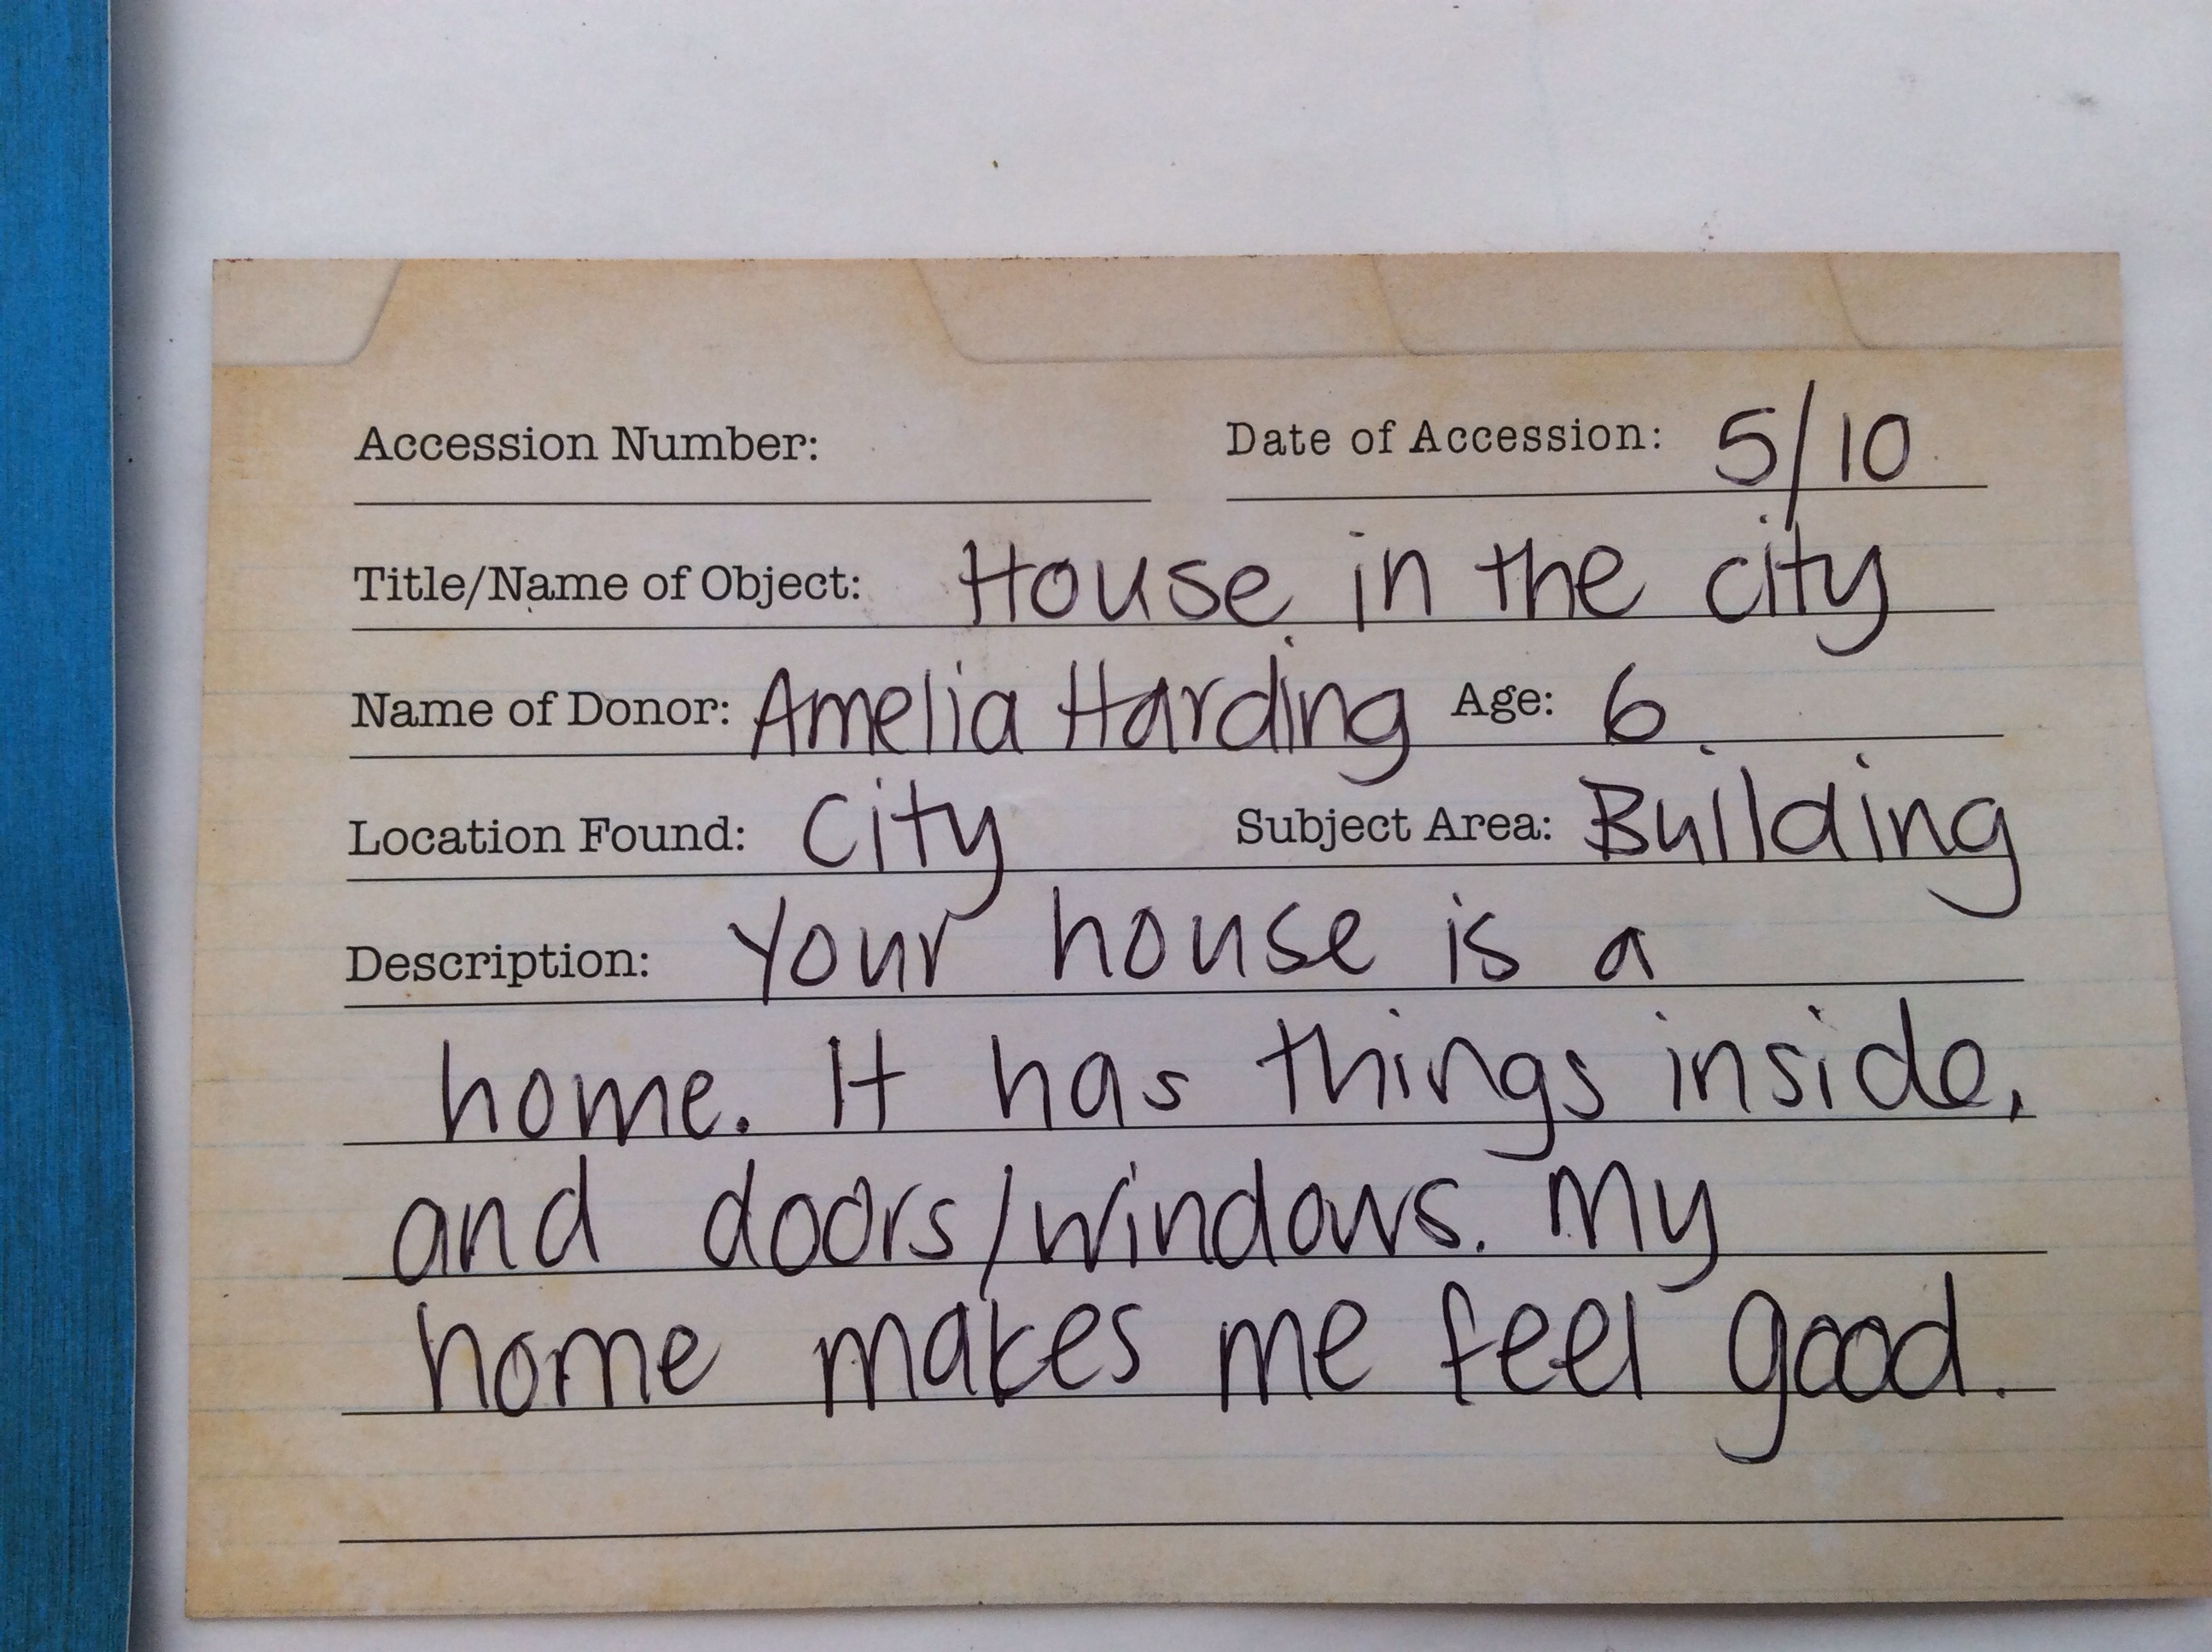 Accession Number: Date of Accession: 5/10
Title/Name of Object: House in the city
Name of Donor: Amelia Harding Age: 6
Location Found: City Subject Area: Building
Description: Your house is a
home. It has things inside,
and doors/windows. My
home makes me feel good.